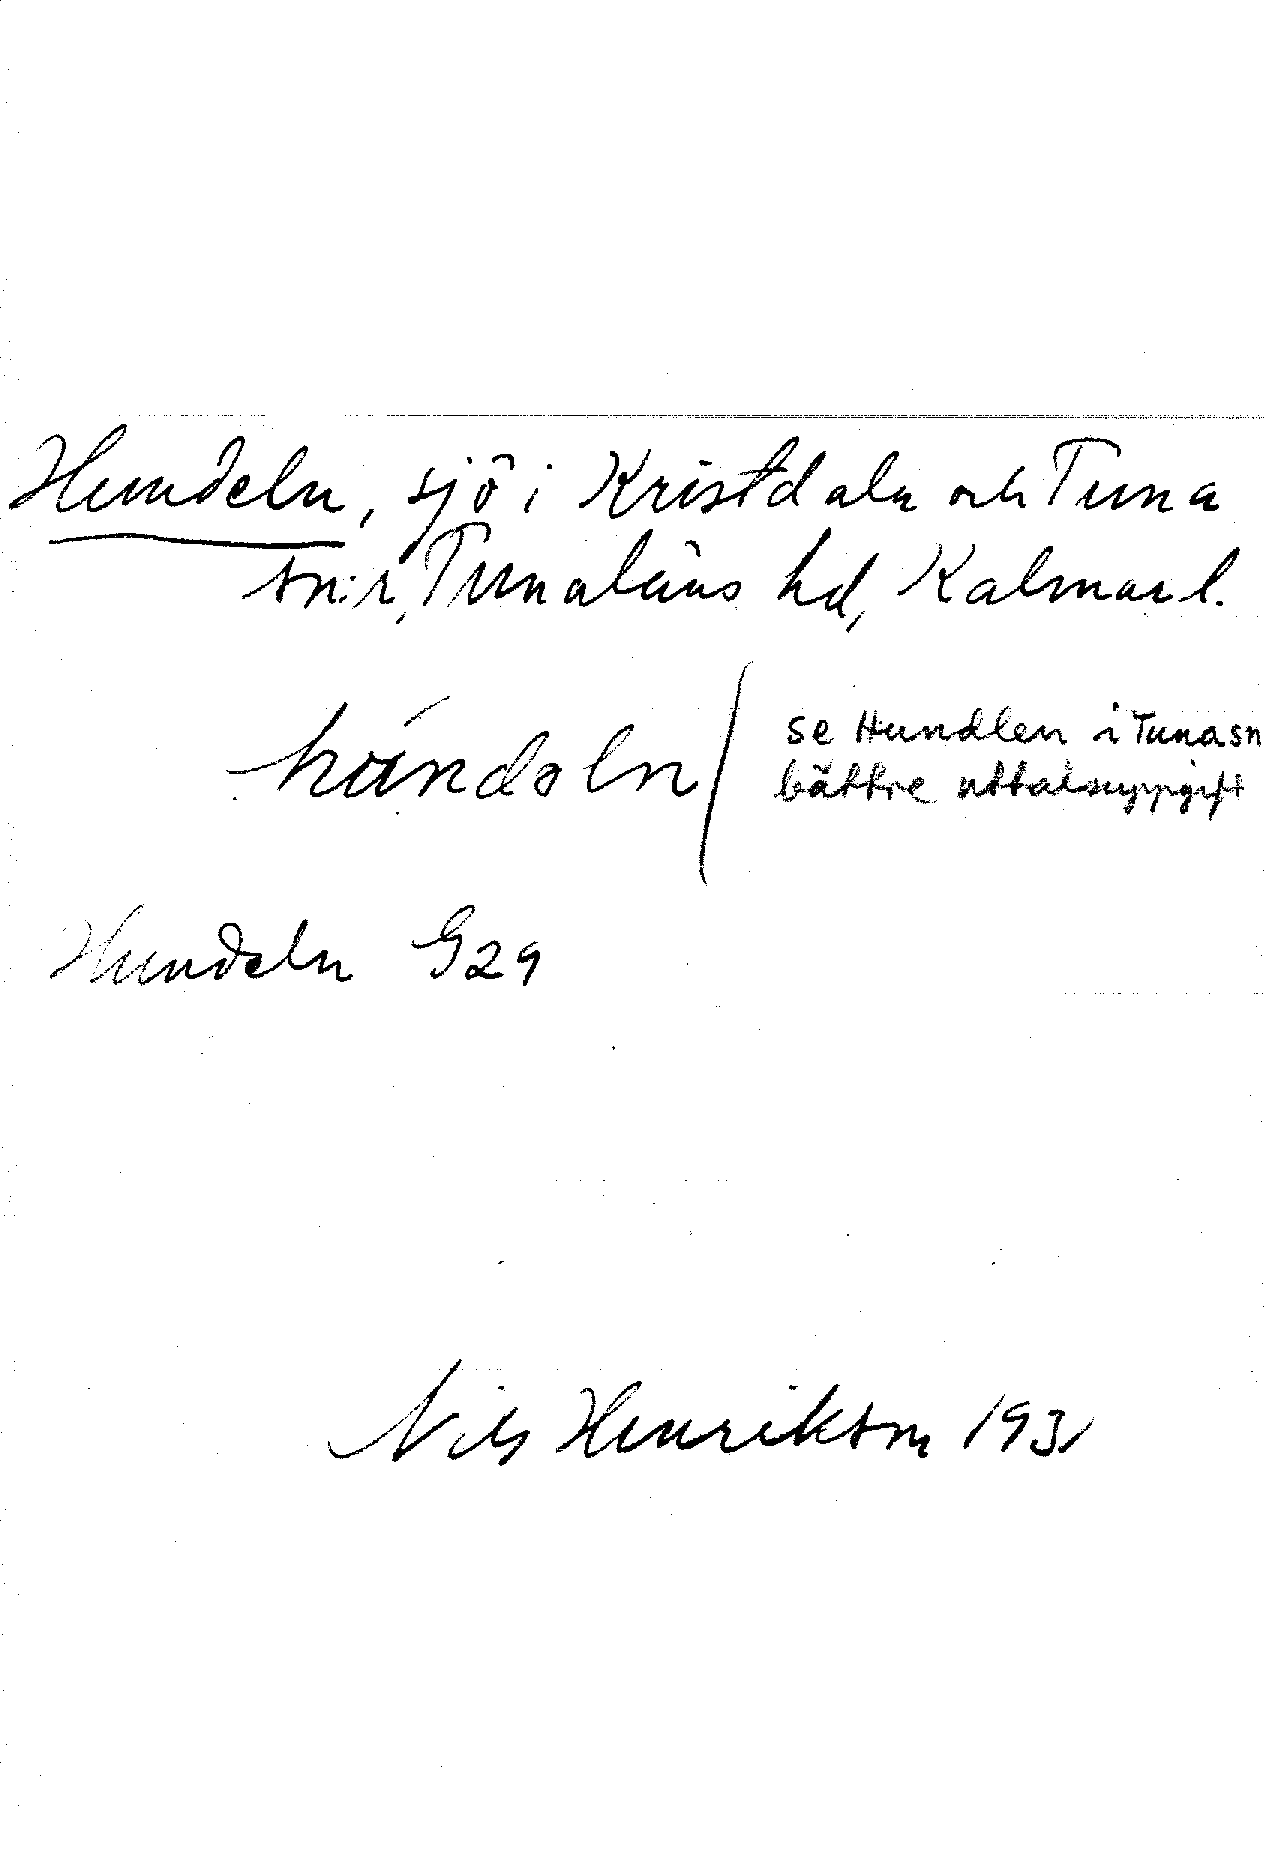 Hundeln, sjö i Kristdala och Tuna
sn:r, Tunaläns hd, Kalmar l.
húndəln
se Hundlen i Tuna sn
bättre uttalsuppgift
Hundeln G29
Nils Henrikson 1931